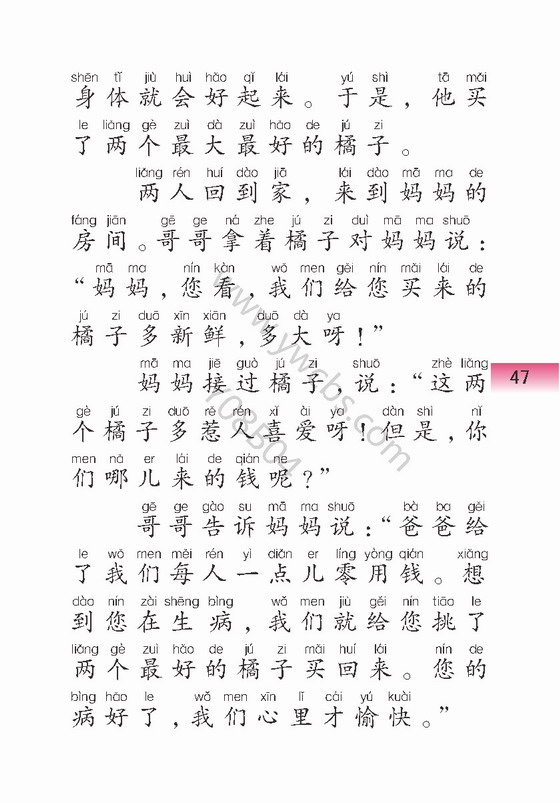 shēn tǐ jiù huì hǎo qǐ lái yú shì tā mǎi
身体就会好起来。于是，他买
le liǎng gè zuì dà zuì hǎo de jú zi
了两个最大最好的橘子。
liǎng rén huí dào jiā lái dào mā ma de
两人回到家，来到妈妈的
fáng jiān gē ge ná zhe jú zi duì mā ma shuō
房间。哥哥拿着橘子对妈妈说：
mā ma nín kàn wǒ men gěi nín mǎi lái de
“妈妈，您看，我们给您买来的
jú zi duō xīn xiān duō dà ya
橘子多新鲜，多大呀！”
mā ma jiē guò jú zi shuō zhè liǎng
妈妈接过橘子，说：“这两
47
gè jú zi duō rě rén xǐ ài ya dàn shì nǐ
个橘子多惹人喜爱呀！但是，你
men nǎ er lái de qián ne
们哪儿来的钱呢？”
gē ge gào su mā ma shuō bà ba gěi
哥哥告诉妈妈说：“爸爸给
le wǒ men měi rén yì diǎn er líng yòng qián xiǎng
了我们每人一点儿零用钱。想
dào nín zài shēng bìng wǒ men jiù gěi nín tiāo le
到您在生病，我们就给您挑了
liǎng gè zuì hǎo de jú zi mǎi huí lái nín de
两个最好的橘子买回来。您的
bìng hǎo le wǒ men xīn lǐ cái yú kuài
病好了，我们心里才愉快。”
www.ywcbs.com
108B04